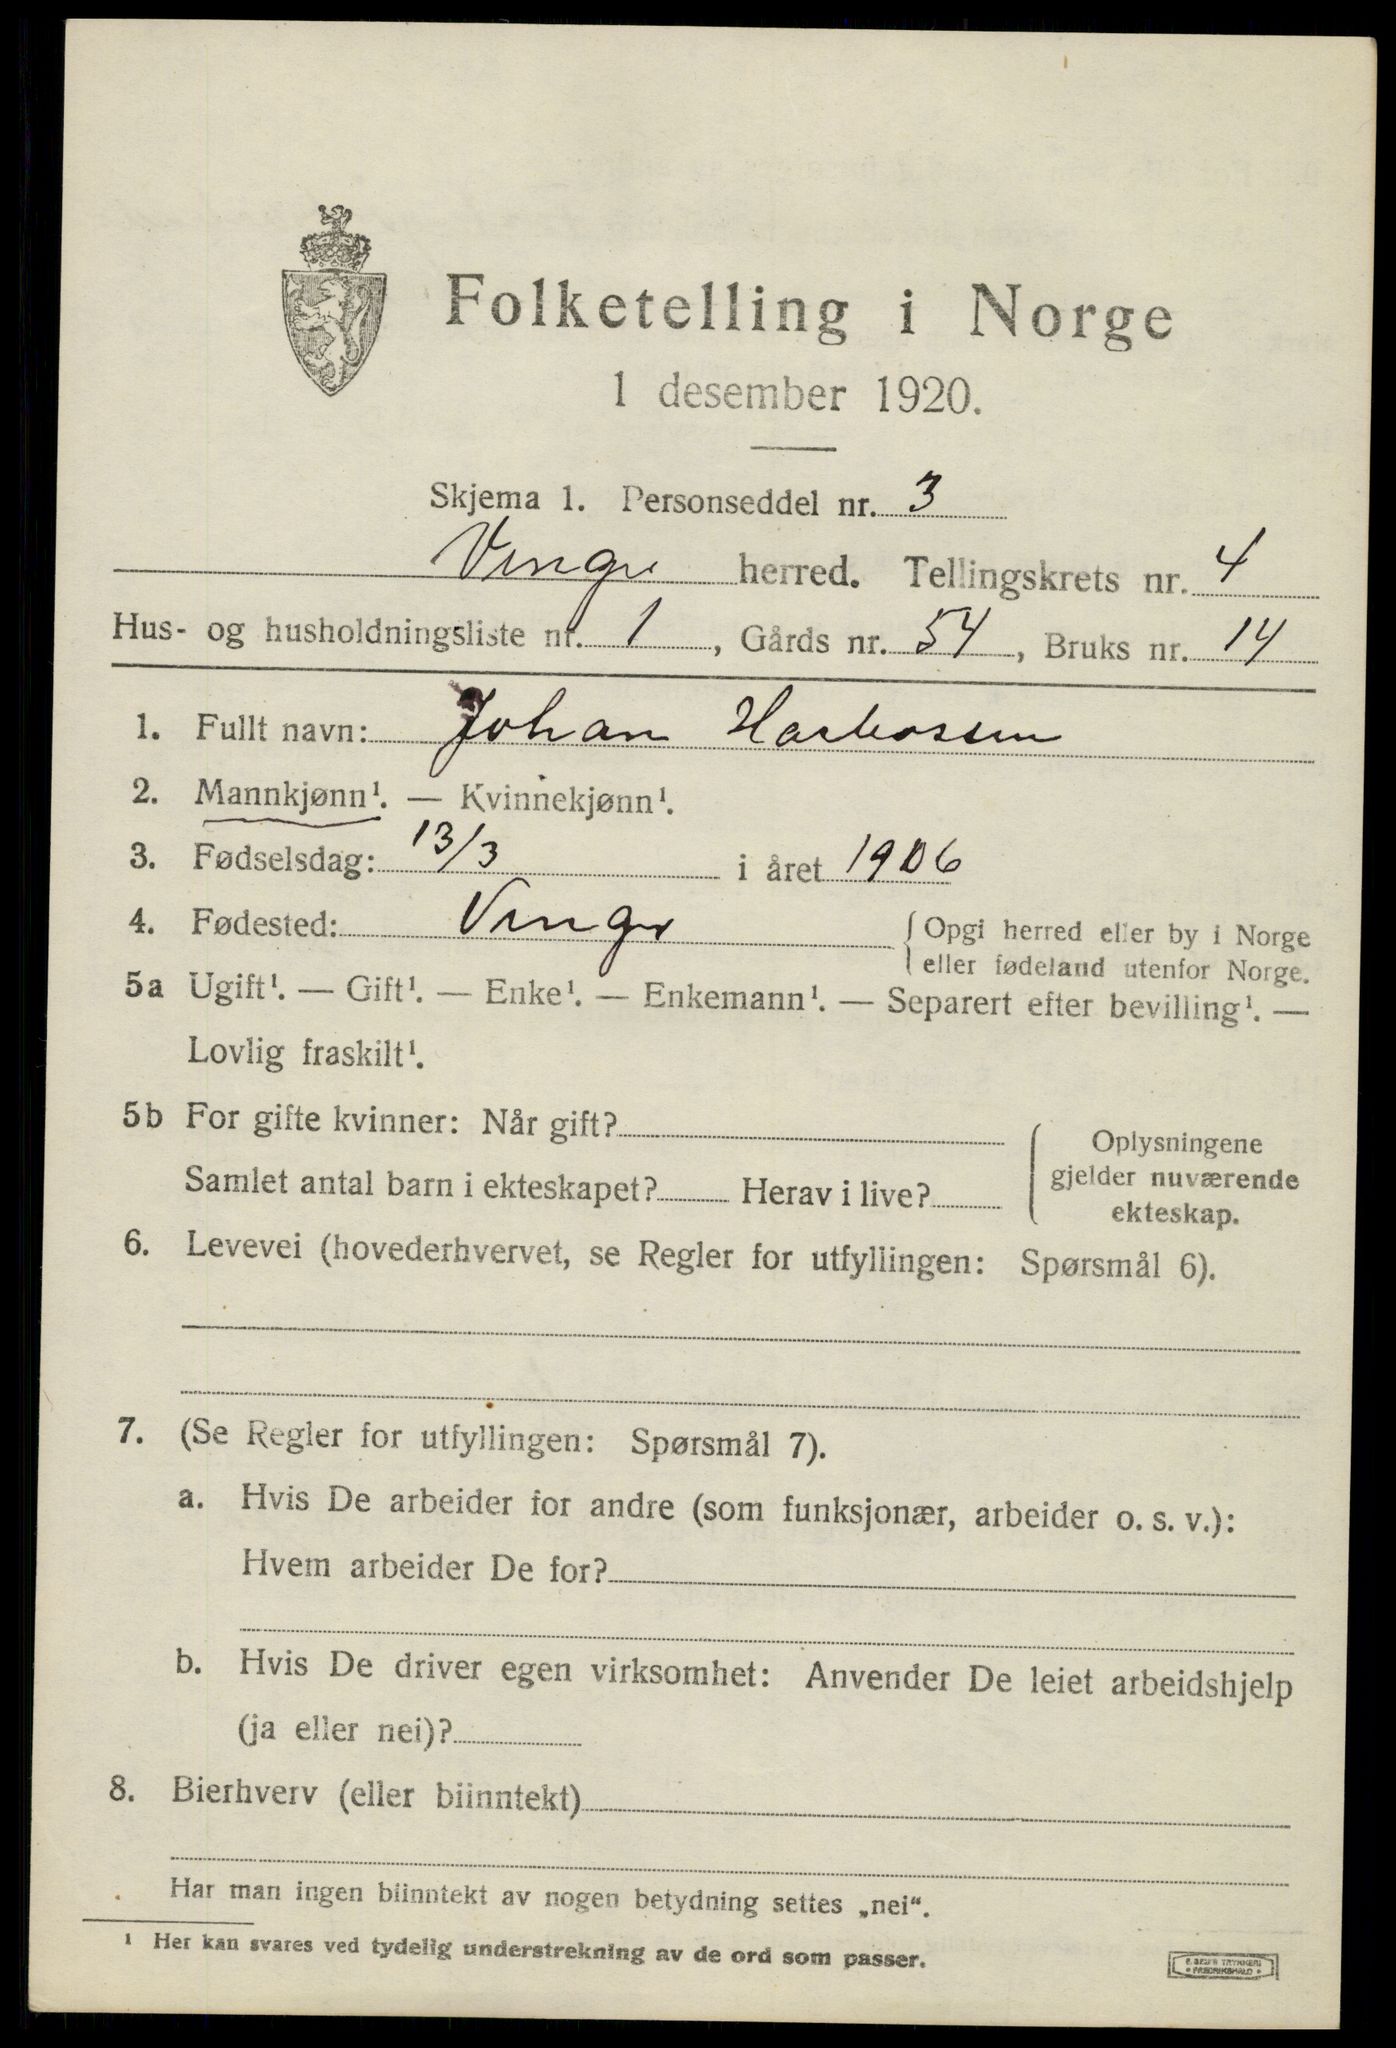 Folketelling i Norge
1 desember 1920.
Skjema 1. Personseddel nr. 3
Vinger herred. Tellingskrets nr. 4
Hus- og husholdningsliste nr. 1, Gårds nr. 54, Bruks nr. 14
1. Fullt navn: Johan
2. Mannkjønn¹. — Kvinnekjønn¹.
3. Fødselsdag: 13/3 i året 1906
4. Fødested: Vinger { Opgi herred eller by i Norge
eller fødeland utenfor Norge.
5a Ugift¹. — Gift¹. — Enke¹. — Enkemann¹. — Separert efter bevilling¹. —
Lovlig fraskilt¹.
5b For gifte kvinner: Når gift?
Samlet antal barn i ekteskapet? Herav i live?
{ Oplysningene
gjelder nuværende
ekteskap.
6. Levevei (hovederhvervet, se Regler for utfyllingen: Spørsmål 6).
7. (Se Regler for utfyllingen: Spørsmål 7).
a. Hvis De arbeider for andre (som funksjonær, arbeider o. s. v.):
Hvem arbeider De for?
b. Hvis De driver egen virksomhet: Anvender De leiet arbeidshjelp
(ja eller nei)?
8. Bierhverv (eller biinntekt)
Har man ingen biinntekt av nogen betydning settes „nei“.
¹ Her kan svares ved tydelig understrekning av de ord som passer.
TRYKKERI
• FREDRIKSHALD •